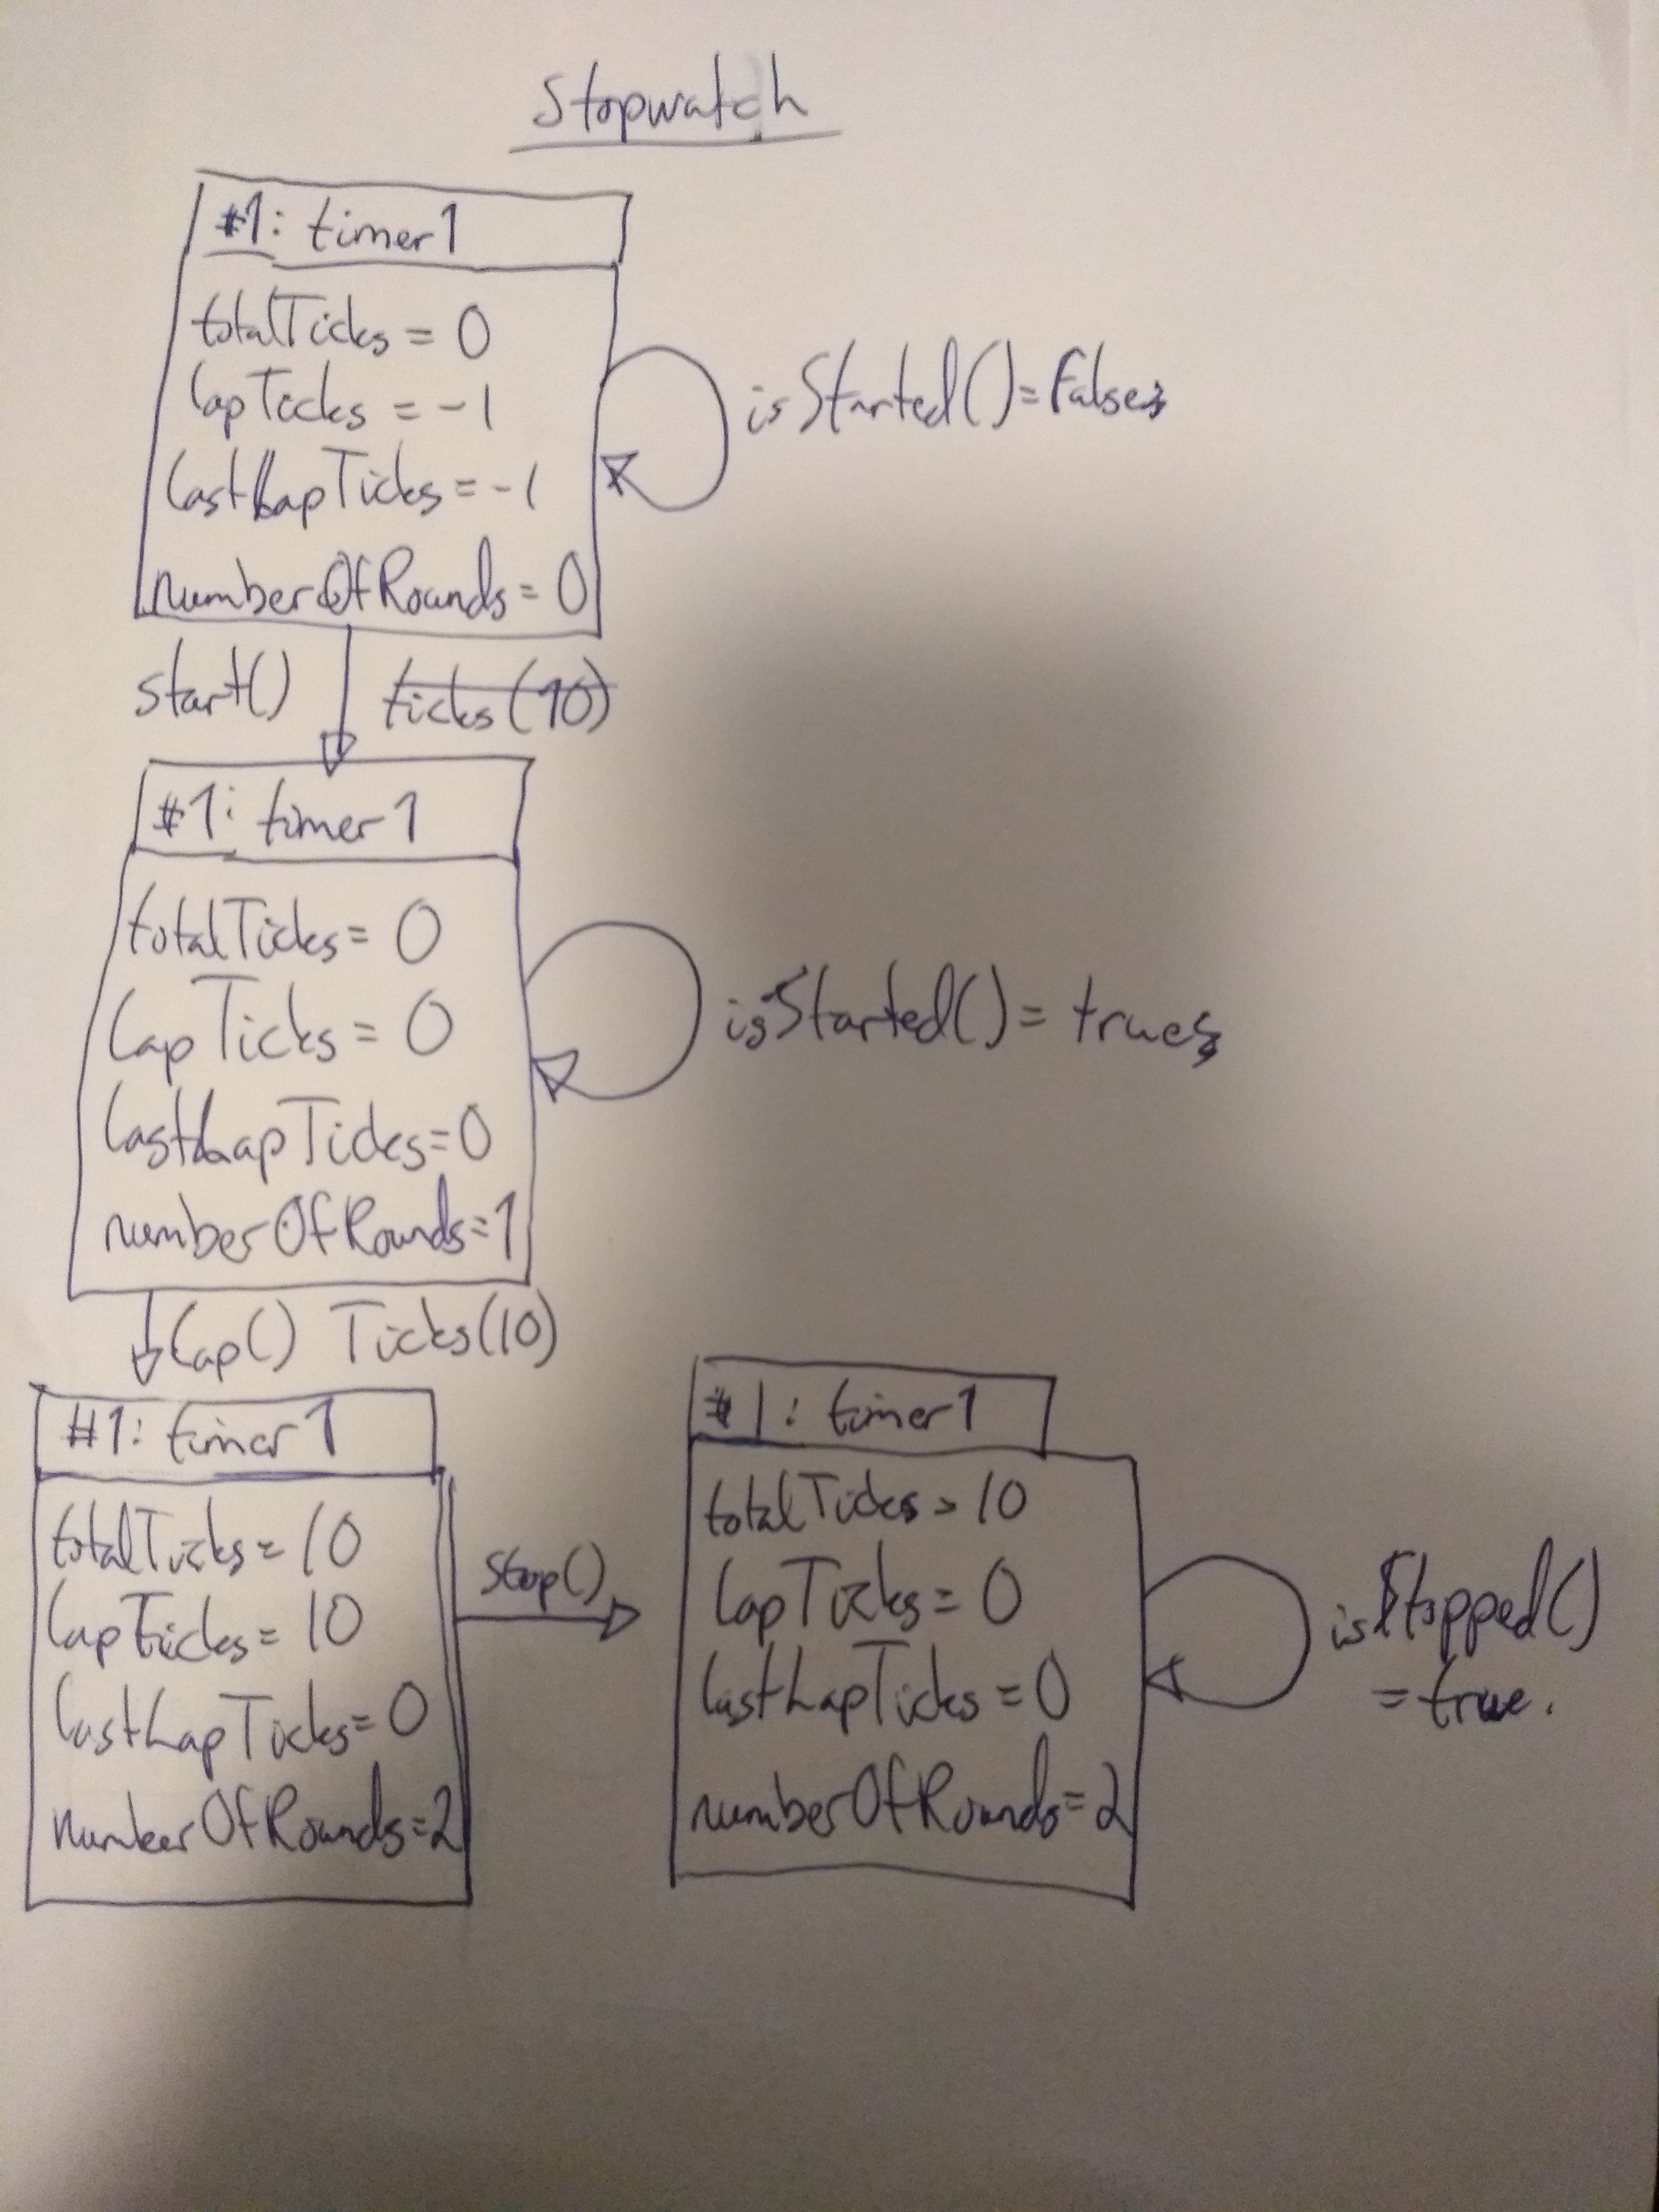 Stopwatch
#1: timer1
totalTicks = 0
lapTicks = -1
lastLapTicks = -1
numberOfRounds = 0
isStarted() = false
start() ticks(10)
#1: timer1
totalTicks = 0
lapTicks = 0
lastLapTicks = 0
numberOfRounds = 1
isStarted() = true
lap() Ticks(10)
#1: timer1
totalTicks = 10
lapTicks = 10
lastLapTicks = 0
numberOfRounds = 2
stop()
#1: timer1
totalTicks = 10
lapTicks = 0
lastLapTicks = 0
numberOfRounds = 2
isStopped()
= true.